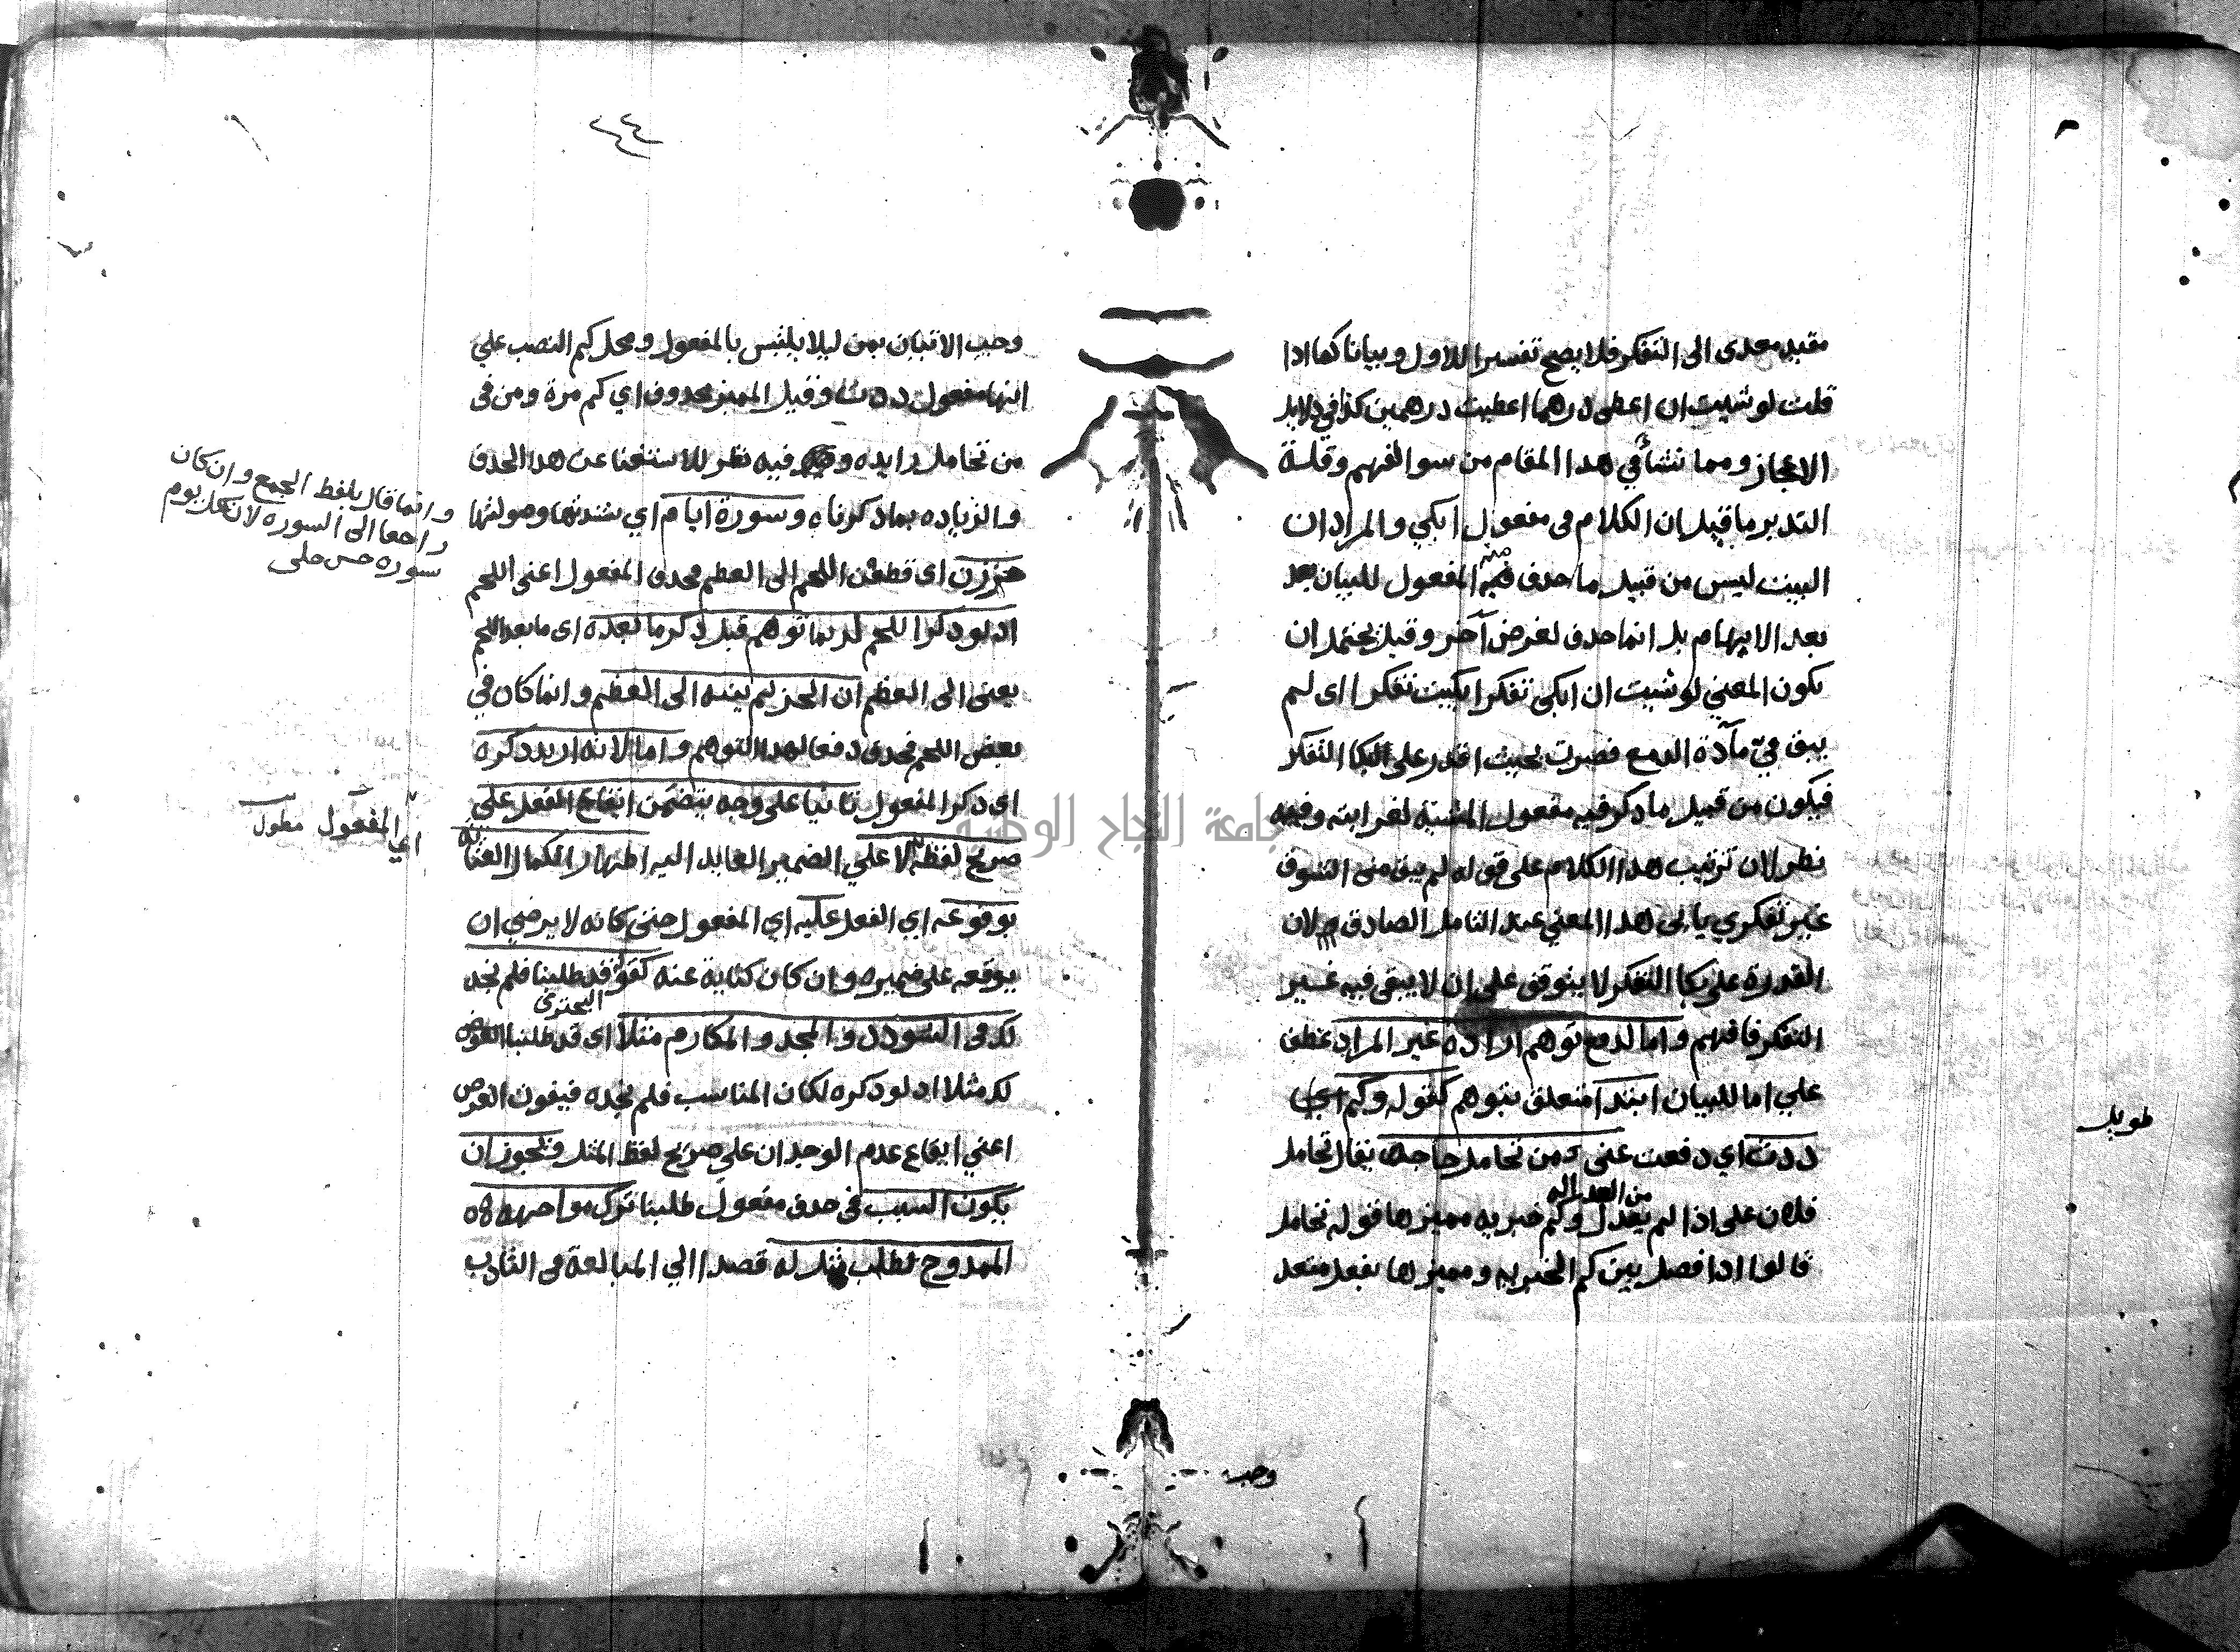 مقيد معدى الى التفكر فلا يصح تفسيرا للاول وبيانا كما اذا
قلت لو شيت ان اعطى درهما اعطيت درهمين كذا في دلايل
الاعجاز ومما نشأ في هدا المقام من سوالفهم وقلة
التدبر ما قيل ان الكلام في مفعول ابكي والمراد ان
البيت ليس من قبيل ما حدف فيه منه المفعول للبيان بعد
بعد الابهام بل انما حدف لغرض آخر وقيل يحتمل ان
يكون المعني لو شيت ان ابكى تفكرا بكيت تفكرا اى لم
يبق فيّ مآدة الدمع فصرت بحيث اقدر على البكا التفكر
فيكون من قبيل ما دكر فيه مفعول المشية لغرابته وفيه
نظر لان ترتيب هدا الكلام على قوله لم يبق منى الشوق
غير تفكري يابى هدا المعني عند التامل الصادق لان
القدرة على بكا التفكر لا يتوقف على ان لا يبقى فيه غير
التفكر فافهم واما لدفع توهم ارادة غير المراد عطف
علي اما للبيان ابتدا متعلق بتوهم كقوله وكم اي
ددت اي دفعت عنى من تحامل حادث يقال تحامل
فلان على اذا لم يعدل من العداله وكم خبريه مميزها قوله تحامل
قالوا ادا فصل بين كم الخبريه ومميزها بفعل متعد
طويل
وجب
٤٤
وجب الاتيان بمن ليلا يلتبس بالمفعول ومحل كم النصب علي
انها مفعول ددت وقيل المميز محدوف اي كم مرة ومن فى
من تحامل زايده وفيه نظر للاستغنا عن هدا الحدف
والزياده بما دكرناه وسورة ايام اي شدتها وصولتها
حززن اى قطعن اللحم الى العظم فحدف المفعول اعنى اللحم
اد لو دكر اللحم لربما توهم قبل دكر ما بعده اى ما بعد اللحم
يعنى الى العظم ان الحز لم ينته الى العظم وانما كان في
بعض اللحم فحدف دفعا لهدا التوهم واما لانه اريد دكره
اى دكر المفعول ثانيا على وجه يتضمن ايقاع الفعل على
صريح لفظه لا علي الضمير العايد اليه اظهارا لكمال العناية
بوقوعه اي الفعل عليه اي المفعول حتى كانه لا يرضي ان
يوقعه على ضميره وان كان كناية عنه كقوله قد طلبنا فلم نجد
البحتري
لك فى السودد والمجد والمكارم مثلا اى قد طلبنا
لك مثلا اد لو دكره لكان المناسب فلم نجده فيفوت الغرض
اعني ايقاع عدم الوجدان على صريح لفظ المثل ويجوز ان
يكون السبب في حدف مفعول طلبنا ترك مواجهة
الممدوح بطلب مثل له قصدا الي المبالغة في التادب
وانما قال بلفظ الجمع وان كان
راجعا الى السوره لان كل يوم
سوره حسن حلبى
اي المفعول مطول
جامعة النجاح الوطنية